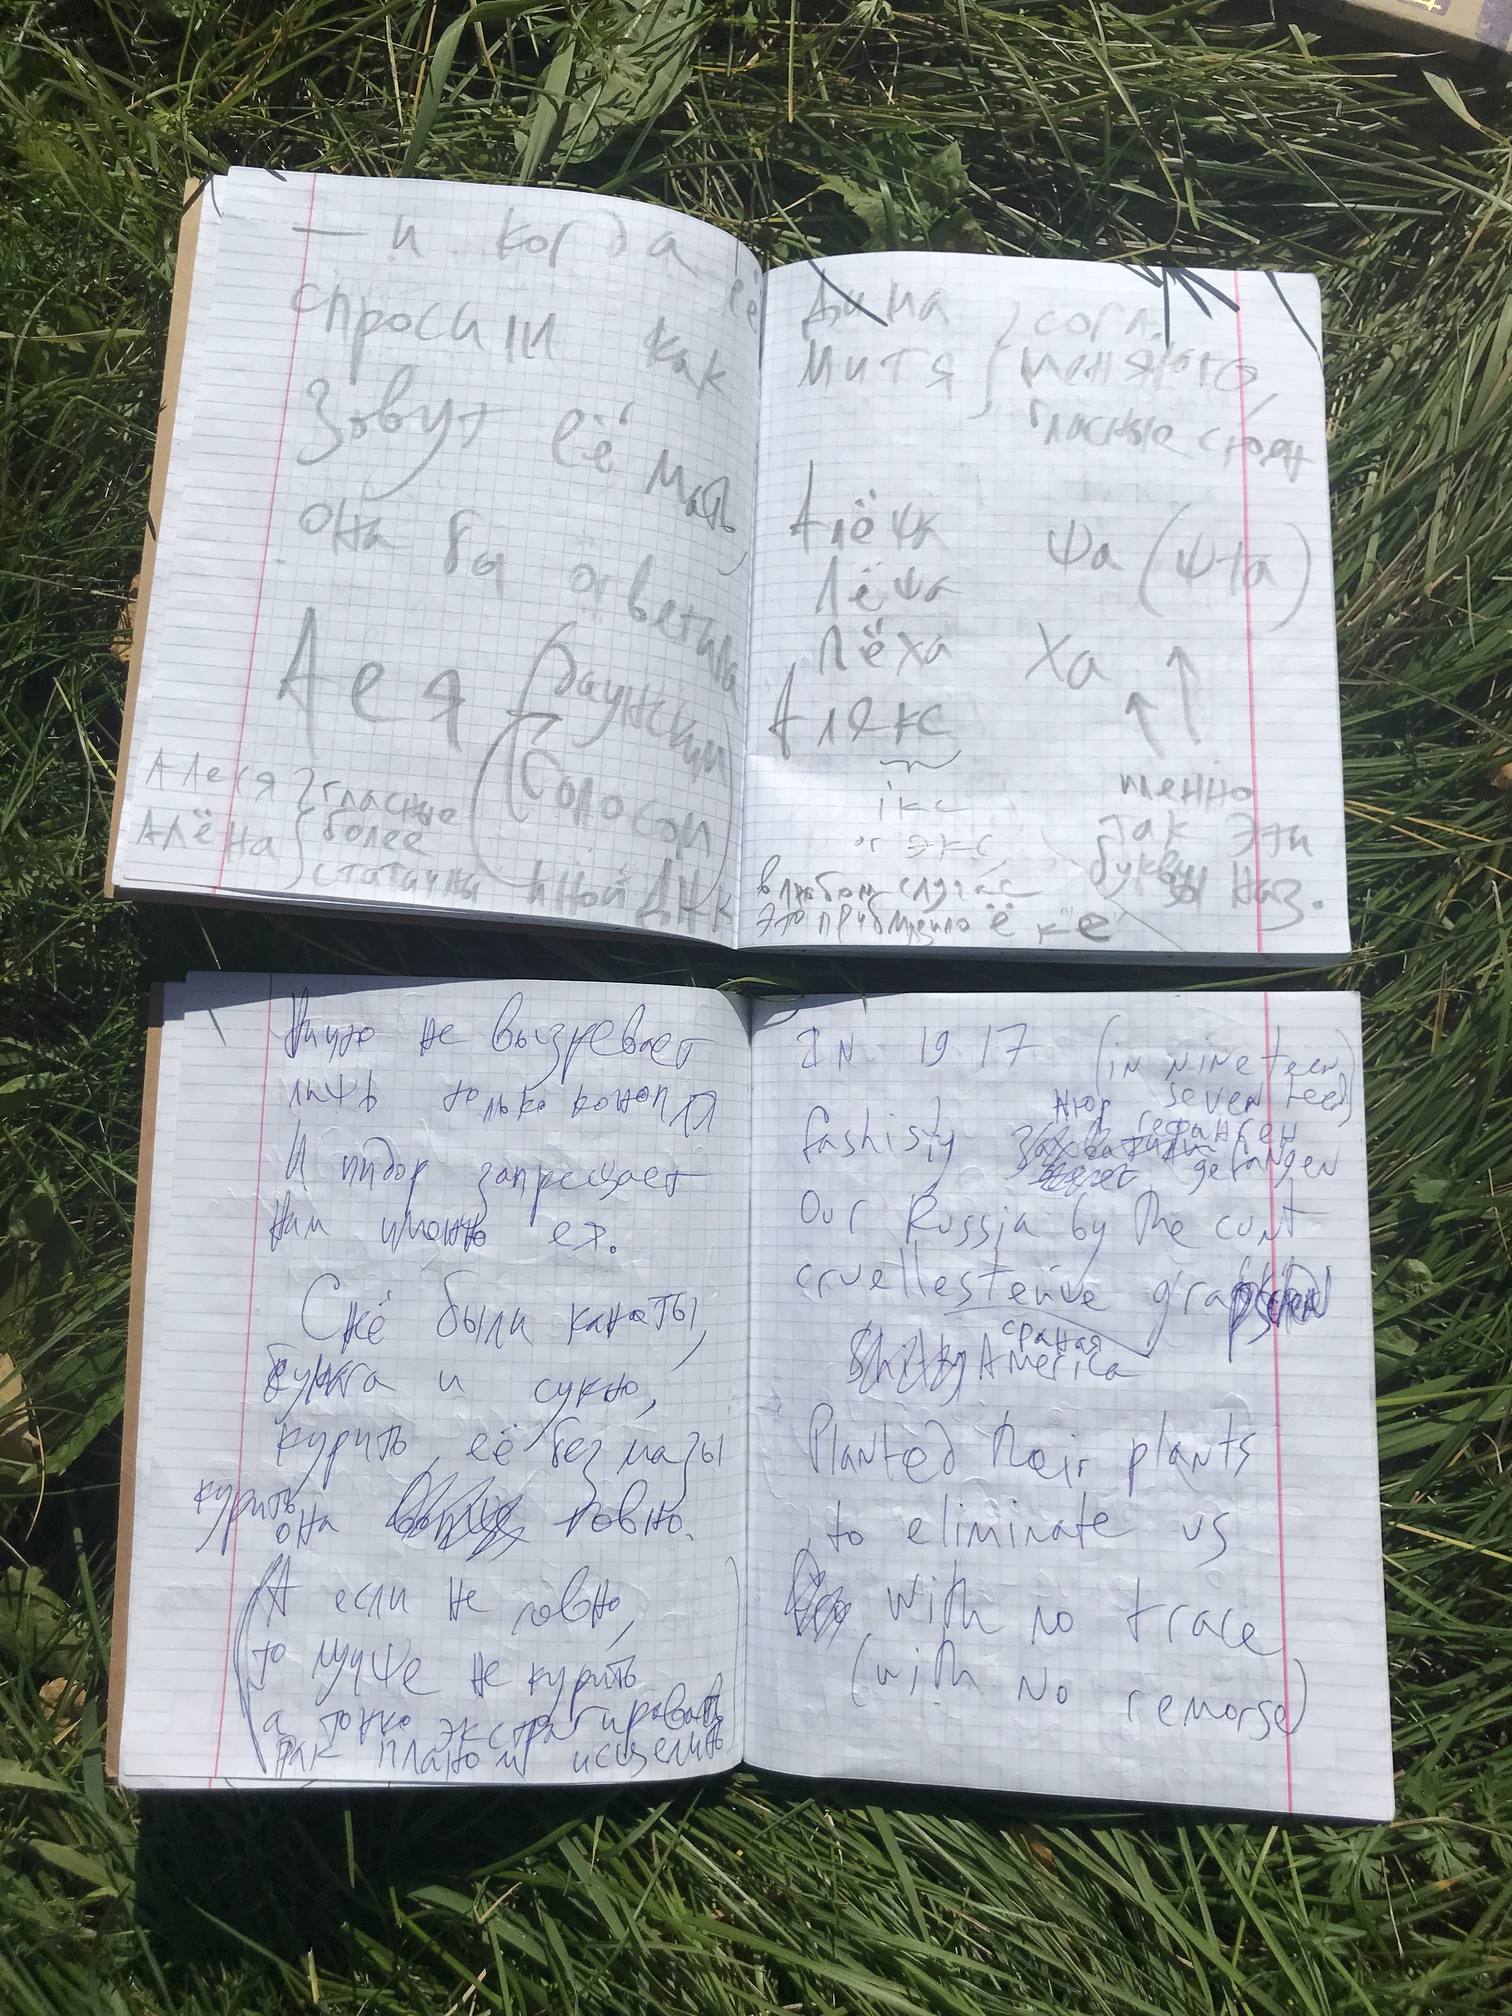 — и когда её
спросили как
зовут её мать,
она бы ответила
Аея (даунским
голосом)
Алеся } гласные
Алёна } более
статичны иной ДНК
Дима } согл.
Митя } меняются,
гласные
Алёша Ѱа (Ѱта)
Лёѱа
Лёха Ха
Алякс
ікс именно
экс, так эти
в любом случае буквы наз.
это приблизило ё к "е"
Ничто не вызревает
лиѱь только конопля
И пидор запрещает
нам именно ея.
С неё были канаты,
бумага и сукно,
курить её без мазы
курить
она говно.
(А если не говно,
то лучѱе не курить
а тонко экстрагировать
как планом исцелить
IN 19 17 (in nineteen
seven teen)
fashisty нюр гефанген
gefangen
Our Russia by the cunt
cruellesteüve
сраная
America
Planted their plants
to eliminate us
with no trace
(with no remorse)